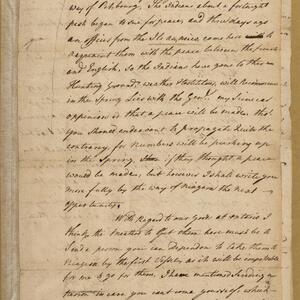 way of Pitsbourg. The Indians about a fortnight
past began to sue for peace, and three days ago
an officer from the Illeanpies came here with to
acquaint them with the peace between the French
and English. So the Indians have gone to their
Hunting Ground. weather
in the Spring Sues with the Genl. my Sincear
oppenion is that a peace will be made. but
you should endeavour to propagate the
contrary, for numbers will be pushing up
in the Spring if they thought a peace
would be made, but however I shall write you
more fully by the way of niagara the next
opportunity.
With Regard to our goods at ontario I
think the easiest to Get them here must be to
Send a person you can Depend on to take them to
niagara by the first Vessels, as it will be impossible
for me to go for them. I have mentioned Sending a
Person in case you can't come yourself which